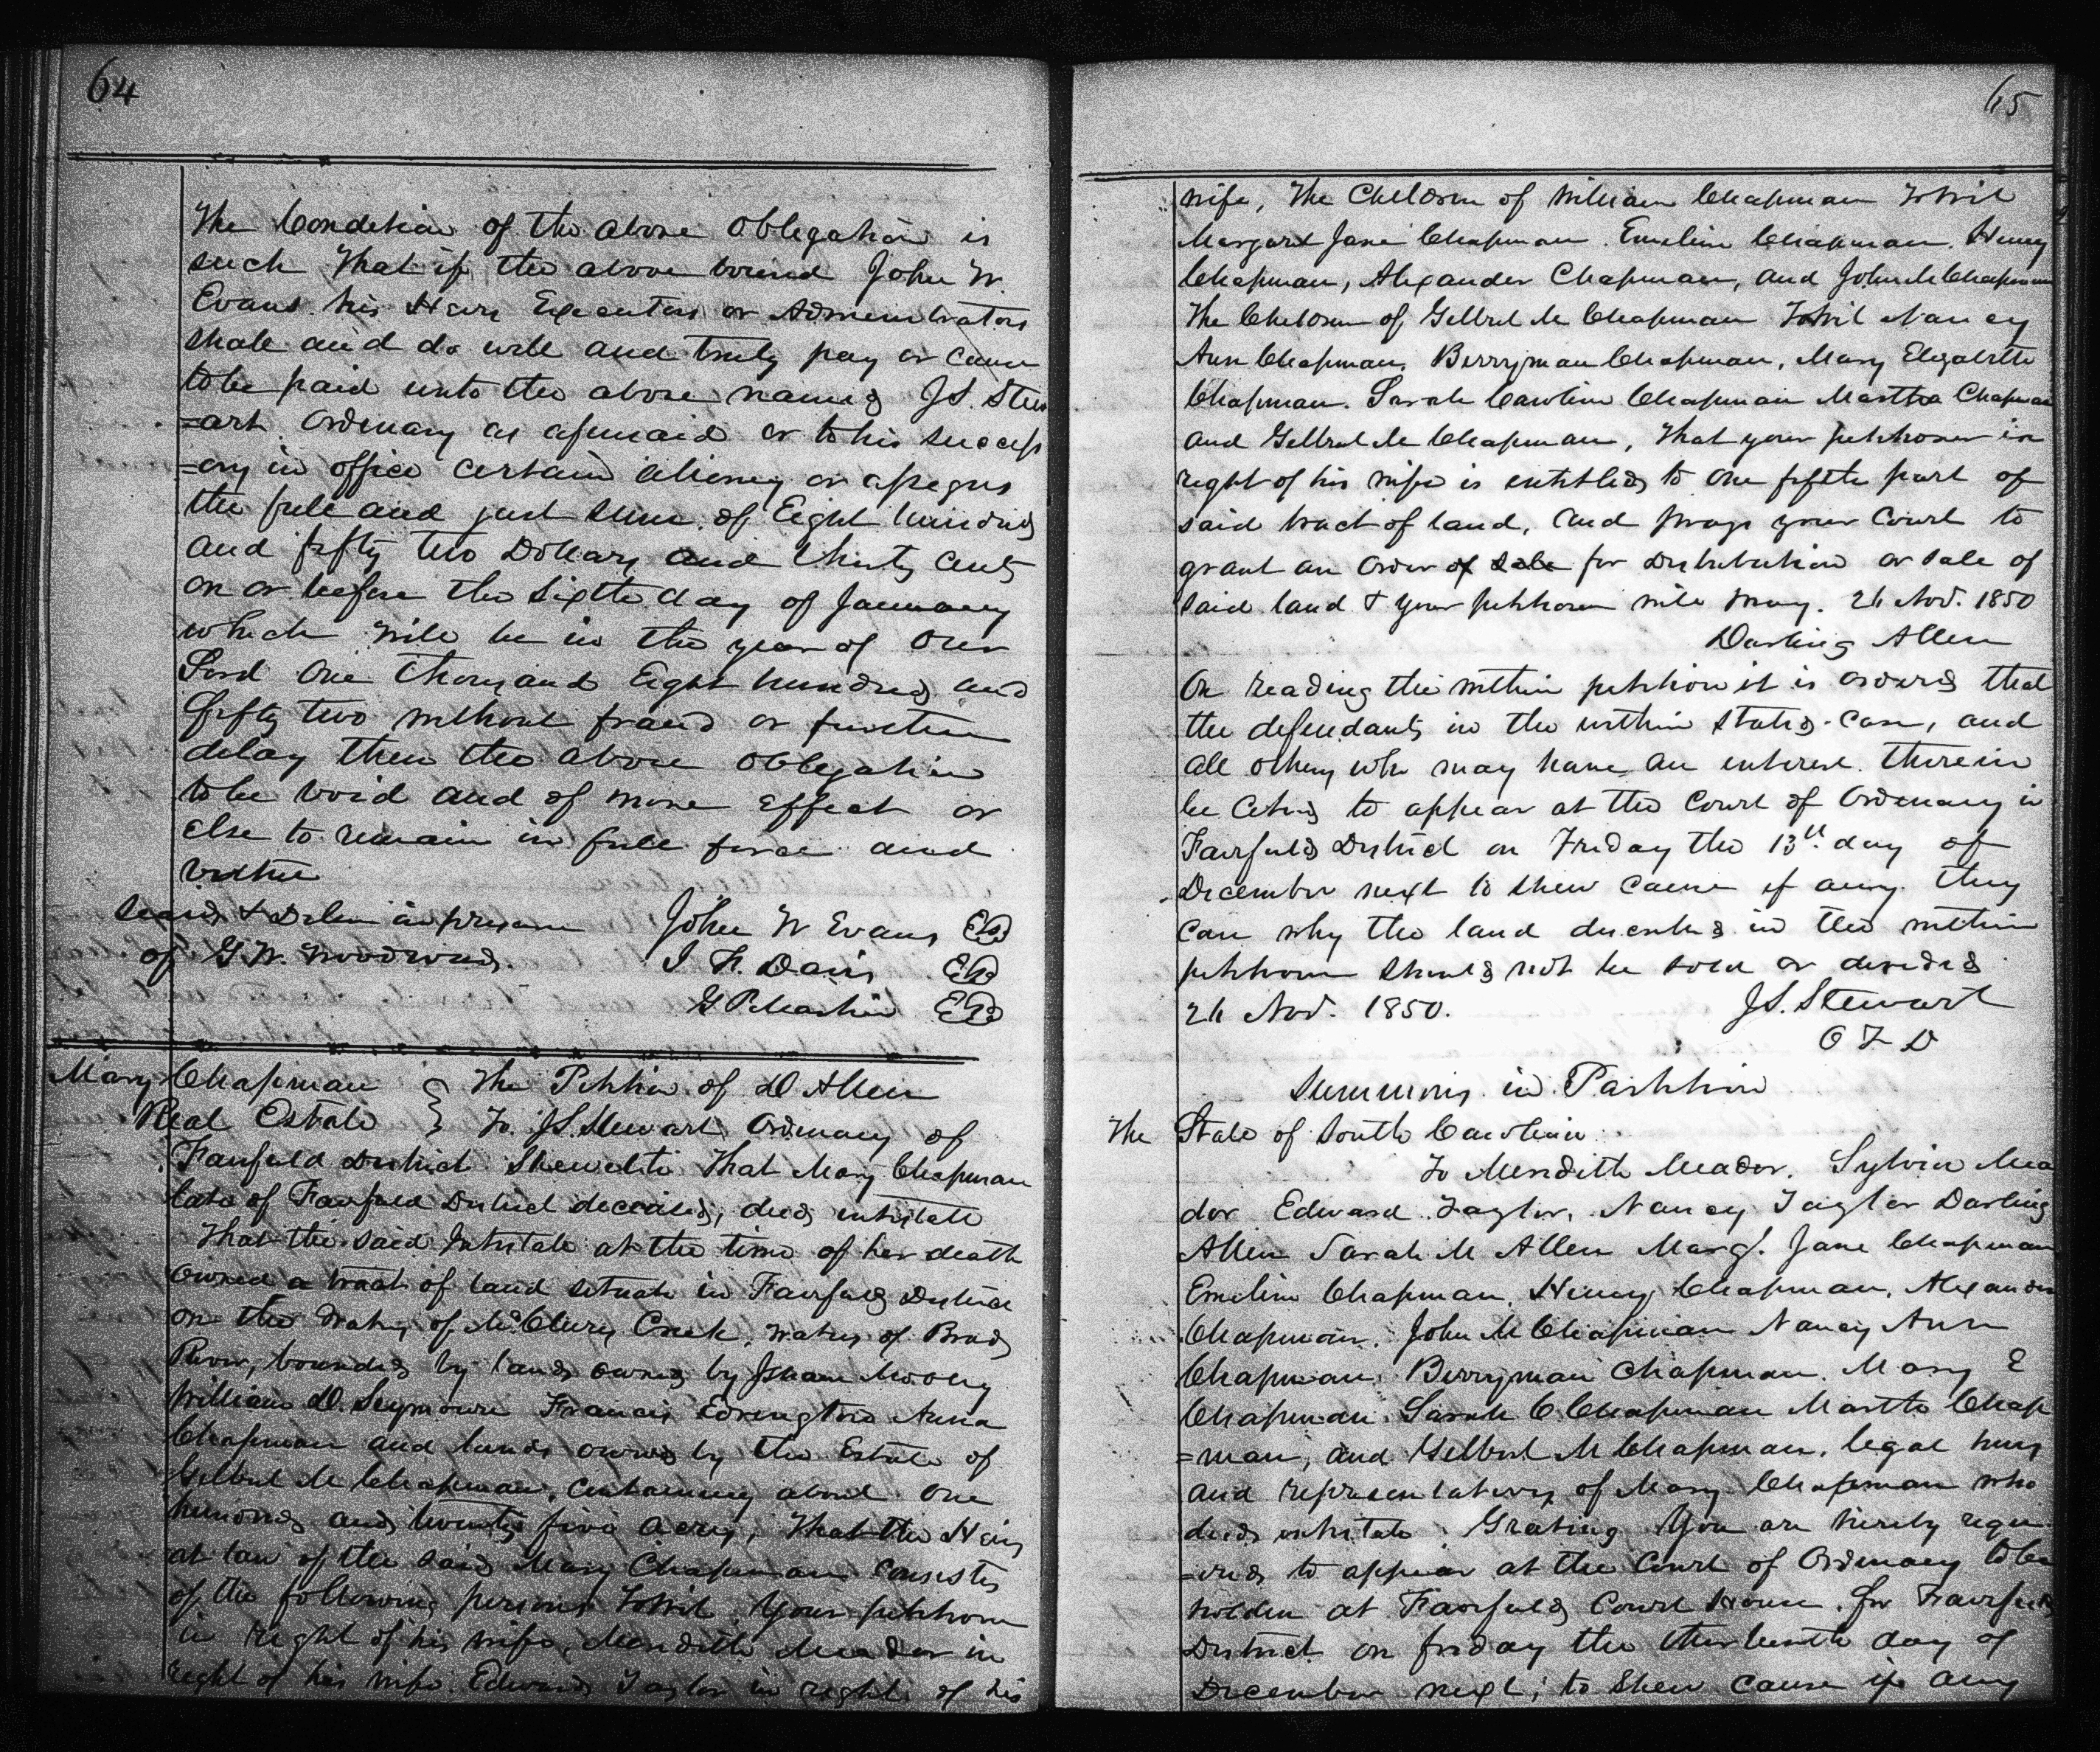 64
The Condition of the above obligation is
such that if the above bound John W.
Evans his Heirs Executors or Administrators
shall and do well and truly pay or cause
to be paid unto the above named J.S. Stew
=art Ordinary as aforesaid or to his success
=ors in office certain attorney or assigns
the full and just sum of Eight hundred
and fifty two Dollars and thirty cents
on or before the Sixth day of January
which will be in the year of our
Lord One Thousand Eight hundred and
fifty two without fraud or further
delay then the above obligation
to be void and of none effect or
else to remain in full force and
virtue
Seald & Deliv in presence John W Evans
of G. W. Woodward. J. F. Davis
G P
Mary Chapman } The Petition of D Allen
Real Estate } To J.S. Stewart Ordinary of
Fairfield District Sheweth That Mary Chapman
late of Fairfield District deceased, died intestate
That the said Intestate at the time of her death
owned a tract of land situate in Fairfield District
on the waters of McClurys Creek, waters of Broad
River, bounded by lands owned by
William D. Seymoure Francis Edrington Anna
Chapman and lands owned by the Estate of
Gilbert M Chapman, containing about one
hundred and twenty five acres, That the Heirs
at law of the said Mary Chapman consists
of the following persons Towit Your petitioner
in right of his wife, Meridith Meador in
right of his wife. Edward Taylor in right of his
65
wife, The Children of William Chapman Towit
Margaret Jane Chapman. Emeline Chapman. Henry
Chapman, Alexander Chapman, and John M Chapman
The Children of Gilbert M Chapman Towit Nancy
Ann Chapman, Berryman Chapman, Mary Elizabeth
Chapman. Sarah Caroline Chapman Martha Chapman
and Gilbert M Chapman, That your petitioner in
right of his wife is entitled to one fifth part of
said tract of land, and prays your Court to
grant an order of sale for distribution or sale of
said land & your petitioner will pray. 26 Nov. 1850
Darling Allen
On reading the within petition it is ordered that
the defendants in the within stated case, and
all others who may have an interest therein
be cited to appear at the Court of Ordinary in
Fairfield District on Friday the 13th day of
December next to shew cause if any they
can why the land described in the within
petition should not be sold or divided
26 Nov. 1850. J.S. Stewart
O F D
Summons in Partition
The State of South Carolina
To Meridith Meador, Sylvia Mea
dor Edward Taylor, Nancy Taylor Darling
Allen Sarah M Allen Margt. Jane Chapman
Emeline Chapman, Henry Chapman, Alexander
Chapman, John M Chapman Nancy Ann
Chapman, Berryman Chapman. Mary E
Chapman, Sarah C Chapman Martha Chap
=man, and Gilbert M Chapman, legal heirs
and representatives of Mary Chapman who
died intestate. Greeting You are hereby requ
=ired to appear at the Court of Ordinary to be
holden at Fairfield Court House. for Fairfield
District on friday the thirteenth day of
December next; to Shew cause if any